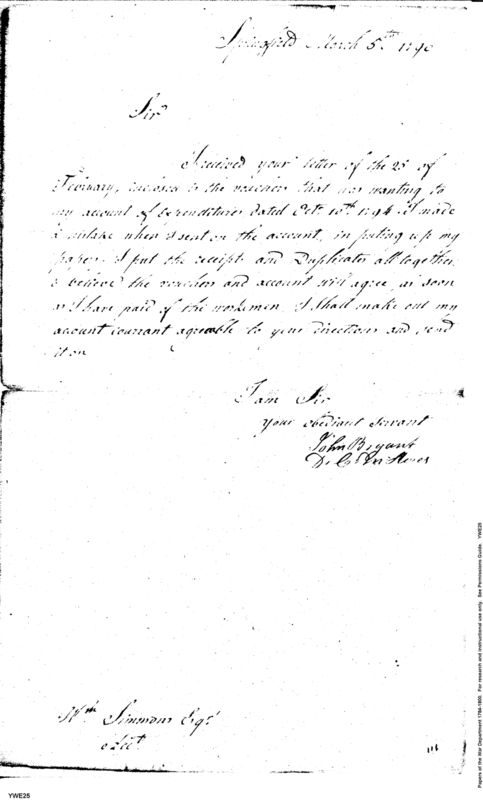 Springfield March 5th 1796
Sir
I received your letter of the 25 of
February, inclosed is the vouchers that was wanting to
my account of Expenditures dated Oct. 10th 1794. I made
a mistake when I sent on the account, in puting up my
papers I put the receipts and Duplicates all together,
I believe the vouchers and account will agree, as soon
as I have paid of the workemen I shall make out my
account courrant agreable to your directions and send
it on
I am Sir
your obediant servant
John Bryant
D. C. M. Stores
Wm Simmons Esqr
Acct
YWE25
Papers of the War Department 1784-1800. For research and instructional use only. See Permissions Guide. YWE25